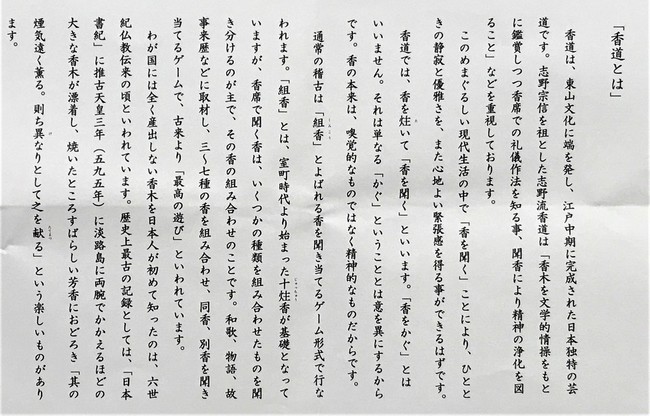 「香道とは」
香道は、東山文化に端を発し、江戸中期に完成された日本独特の芸
道です。志野宗信を祖とした志野流香道は「香木を文学的情操をもと
に鑑賞しつつ香席での礼儀作法を知る事、聞香により精神の浄化を図
ること」などを重視しております。
このめまぐるしい現代生活の中で「香を聞く」ことにより、ひとと
きの静寂と優雅さを、また心地よい緊張感を得る事ができるはずです。
香道では、香を炷いて「香を聞く」といいます。「香をかぐ」とは
いいません。それは単なる「かぐ」ということとは意を異にするから
です。香の本来は、嗅覚的なものではなく精神的なものだからです。
通常の稽古は「組香」とよばれる香を聞き当てるゲーム形式で行な
われます。「組香」とは、室町時代より始まった十炷香が基礎となって
いますが、香席で聞く香は、いくつかの種類を組み合わせたものを聞
き分けるのが主で、その香の組み合わせのことです。和歌、物語、故
事来歴などに取材し、三〜七種の香を組み合わせ、同香、別香を聞き
当てるゲームで、古来より「最高の遊び」といわれています。
わが国には全く産出しない香木を日本人が初めて知ったのは、六世
紀仏教伝来の頃といわれています。歴史上最古の記録としては、「日本
書紀」に推古天皇三年（五九五年）に淡路島に両腕でかかえるほどの
大きな香木が漂着し、焼いたところすばらしい芳香におどろき「其の
煙気遠く薫る。則ち異なりとして之を献る」という楽しいものがあり
ます。